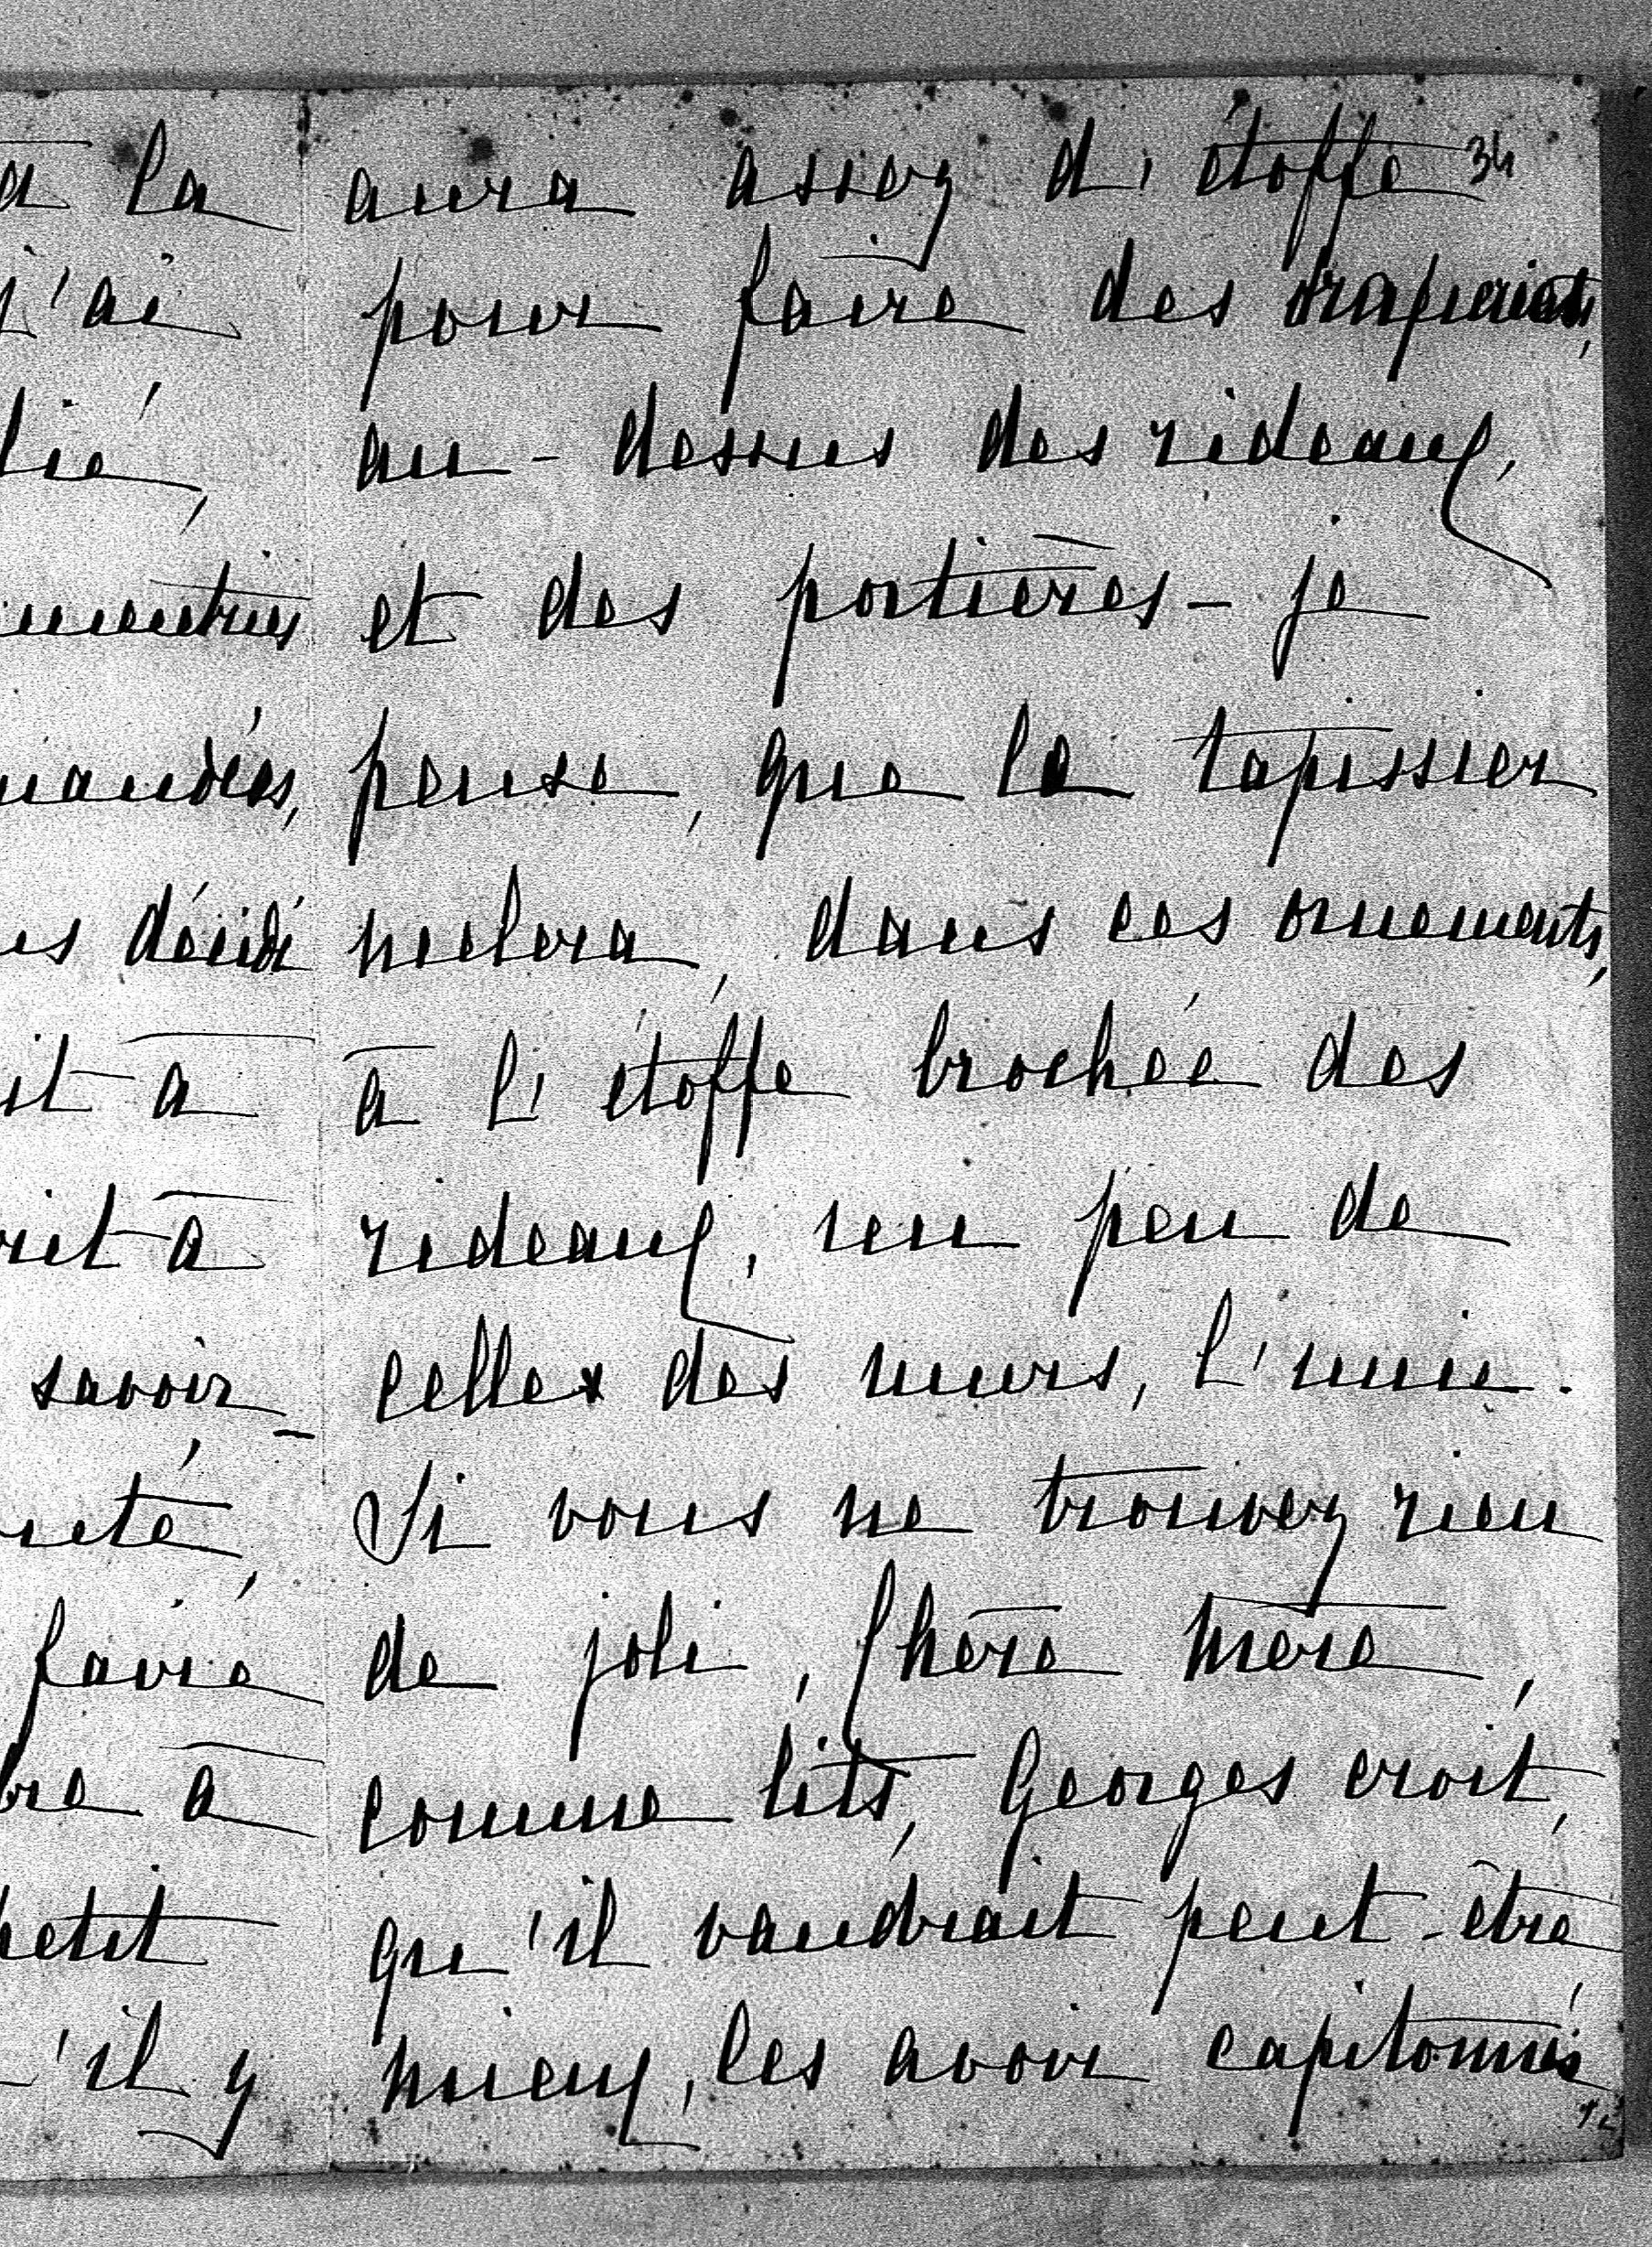 a la
j'ai
lié,
mentries
mandées,
us décidé
it à
rit à
savoir_
neté,
faire
bre à
petit
-'il y
34
aura assez d'étoffe
pour faire des draperies,
au-dessus des rideaux,
et des portières - je
pense, que le tapissier
melera, dans ces ornements,
à l'étoffe brochée des
rideaux, un peu de
celle des murs, l'unie.
Si vous ne trouvez rien
de joli, chère mère,
comme lits, Georges croit,
qu'il vaudrait peut-être
mieux, les avoir capitonnés